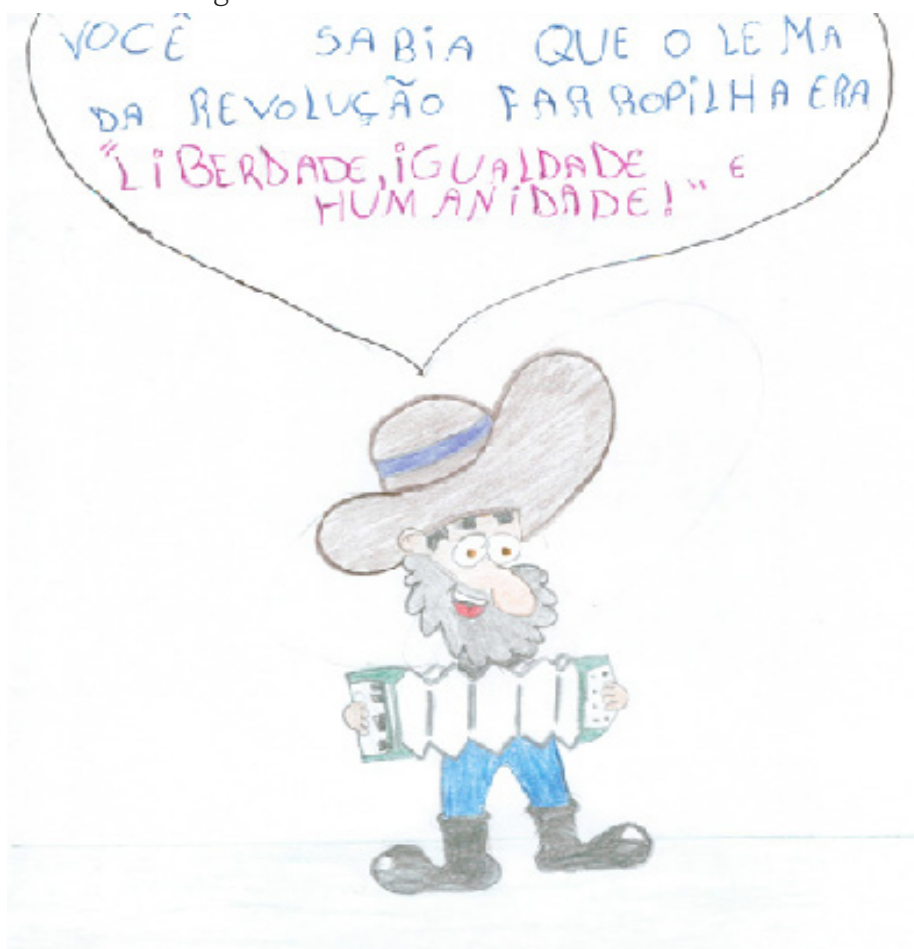 VOCÊ SABIA QUE O LEMA
DA REVOLUÇÃO FARROPILHA ERA
"LIBERDADE, IGUALDADE E
HUMANIDADE!"